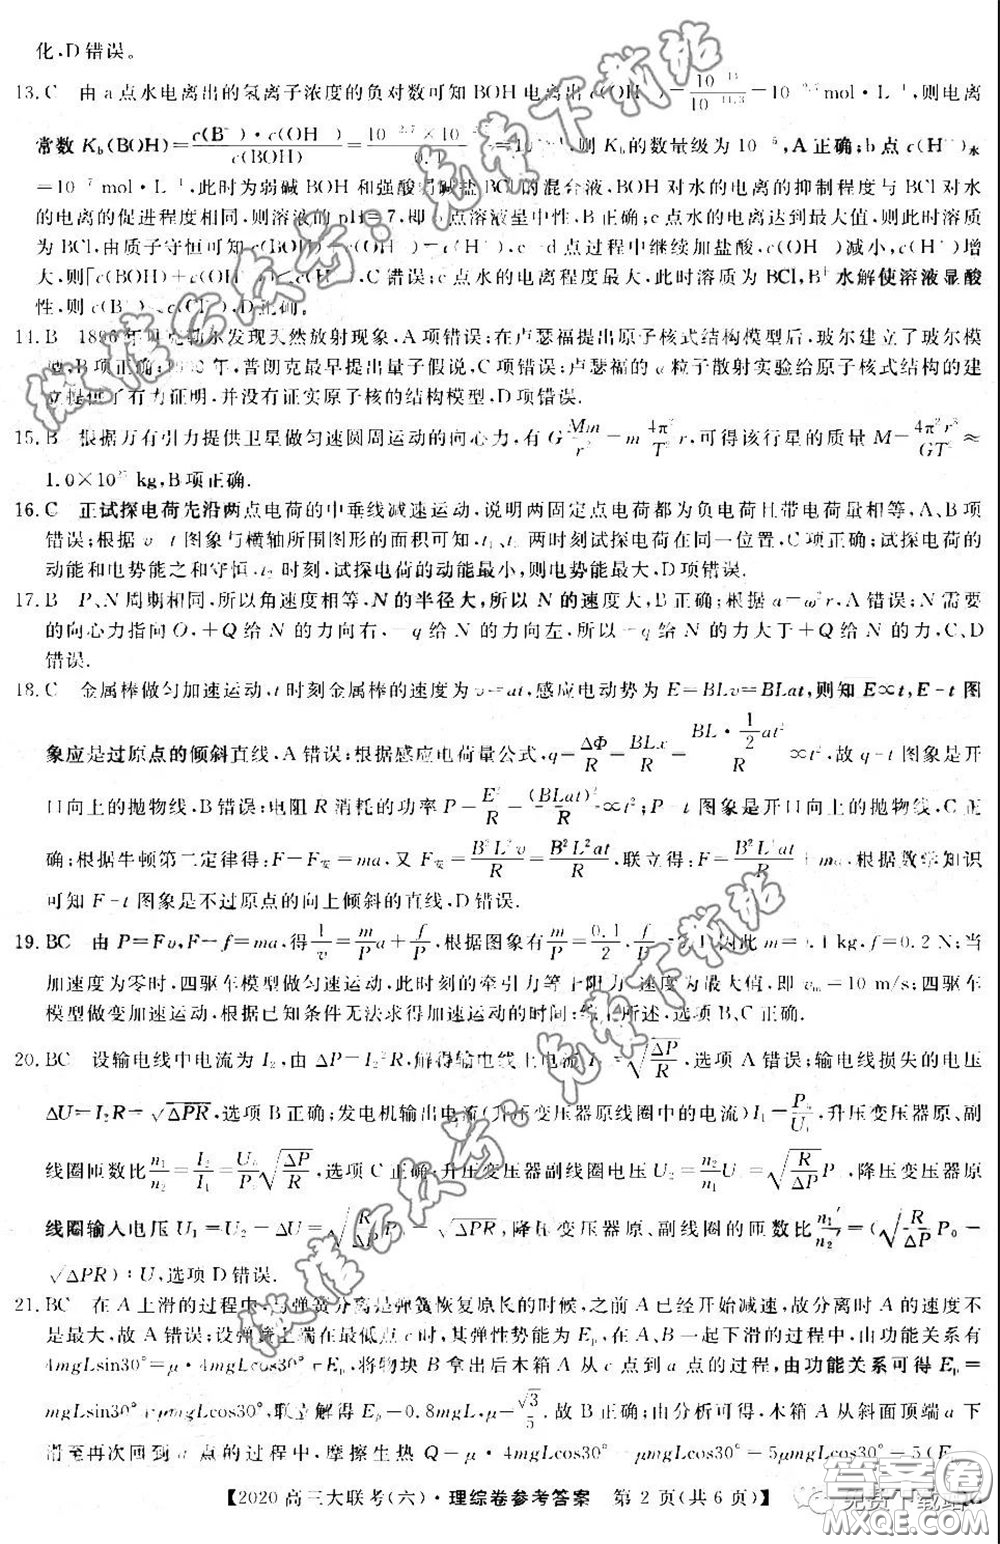 化,D错误。
13. C 由a点水电离出的氢离子浓度的负对数可知BOH电离出 mol·L ,则电离
常数K_b(BOH)= c(B )·c(OH )/c(BOH) = ,则K_b的数量级为10 ,A正确;b点c(H )水
mol·L ,此时为弱碱BOH和强酸 盐BCl的混合液,BOH对水的电离的抑制程度与BCl对水
的电离的促进程度相同,则溶液的pH=7,即 点溶液呈中性,B正确;c点水的电离达到最大值,则此时溶质
为BCl,由质子守恒可知c(BOH) c(OH )=c(H ),c→d点过程中继续加盐酸,c(OH )减小,c(H )增
大,则 c(BOH)+c(OH ) <c(H ),C错误;c点水的电离程度最大,此时溶质为BCl,B 水解使溶液显酸
性,则c(B )<c(Cl ),D正确.
B 1896年贝克勒尔发现天然放射现象,A项错误;在卢瑟福提出原子核式结构模型后,玻尔建立了玻尔模
型,B项正确; 年,普朗克最早提出量子假说,C项错误;卢瑟福的α粒子散射实验给原子核式结构的建
立提供了有力证明,并没有证实原子核的结构模型,D项错误.
15. B 根据万有引力提供卫星做匀速圆周运动的向心力,有G Mm/r² = m 4π²/T² r,可得该行星的质量M = 4π²r³/GT² ≈
1.0×10 kg,B项正确.
16. C 正试探电荷先沿两点电荷的中垂线减速运动,说明两固定点电荷都为负电荷且带电荷量相等,A、B项
错误;根据v-t图象与横轴所围图形的面积可知,t₁、 两时刻试探电荷在同一位置,C项正确;试探电荷的
动能和电势能之和守恒,t₂时刻,试探电荷的动能最小,则电势能最大,D项错误.
17. B P、N周期相同,所以角速度相等,N的半径大,所以N的速度大,B正确;根据a=ω²r,A错误;N需要
的向心力指向O,+Q给N的力向右,-q给N的力向左,所以-q给N的力大于+Q给N的力,C、D
错误.
18. C 金属棒做匀加速运动,t时刻金属棒的速度为v=at,感应电动势为E=BLv=BLat,则知E∝t,E-t图
象应是过原点的倾斜直线,A错误;根据感应电荷量公式,q=ΔΦ/R=BLx/R=BL·½at²/R∝t²,故q-t图象是开
口向上的抛物线,B错误;电阻R消耗的功率P=E²/R=(BLat)²/R∝t²,P-t图象是开口向上的抛物线,C正
确;根据牛顿第二定律得:F-F安=ma,又F安=B²L²v/R=B²L²at/R,联立得:F=B²L²at/R+ma,根据数学知识
可知F-t图象是不过原点的向上倾斜的直线,D错误.
19. BC 由P=Fv,F-f=ma,得1/v=m/P a+f/P,根据图象有m/P=0.1/2, f/P= ,因此m= kg,f=0.2 N;当
加速度为零时,四驱车模型做匀速运动,此时刻的牵引力等于阻力,速度为最大值,即v_m=10 m/s;四驱车
模型做变加速运动,根据已知条件无法求得加速运动的时间;综上所述,选项B、C正确.
20. BC 设输电线中电流为I₂,由ΔP=I₂²R,解得输电线上电流I =√(ΔP/R),选项A错误;输电线损失的电压
ΔU=I₂R=√(ΔPR),选项B正确;发电机输出电流(升压变压器原线圈中的电流)I₁= ,升压变压器原、副
线圈匝数比n₁/n₂=I₂/I₁= √(ΔP/R),选项C正确;升压变压器副线圈电压U₂=n₂/n₁ U =√(R/ΔP)P ,降压变压器原
线圈输入电压U₁=U₂-ΔU=√(R/ΔP)P -√(ΔPR),降压变压器原、副线圈的匝数比n₁′/n₂′=(√(R/ΔP)P₀-
√ΔPR):U,选项D错误.
21. BC 在A上滑的过程中,与弹簧分离是弹簧恢复原长的时候,之前A已经开始减速,故分离时A的速度不
是最大,故A错误;设弹簧上端在最低点c时,其弹性势能为E_p,在A、B一起下滑的过程中,由功能关系有
4mgLsin30°=μ·4mgLcos30°+E_p,将物块B拿出后木箱A从c点到a点的过程,由功能关系可得E_p=
mgLsin30°+μmgLcos30°,联立解得E_p=0.8mgL,μ=√3/5.故B正确;由分析可得,木箱A从斜面顶端a下
滑至再次回到a点的过程中,摩擦生热Q=μ·4mgLcos30°+μmgLcos30°=5μmgLcos30°=5(E_p
【2020高三大联考(六)·理综卷参考答案 第2页(共6页)】
微信公众号:免费下载站
答案圈
MXQE.COM